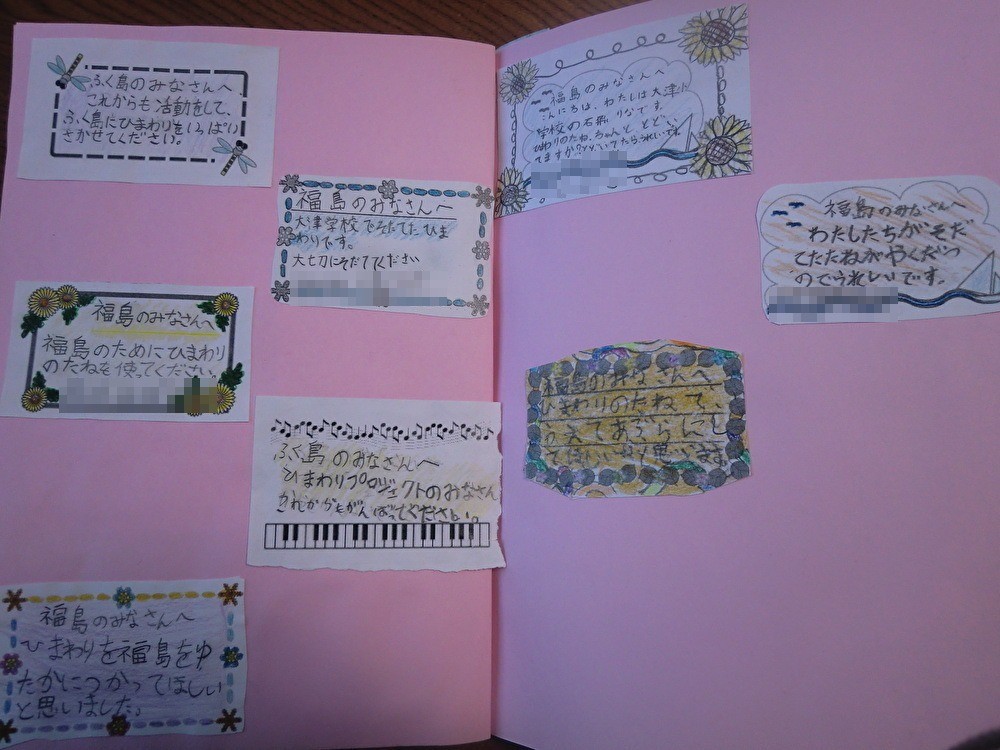 ふく島のみなさんへ
これからも活動をして、
ふく島にひまわりをいっぱい
さかせてください。
福島のみなさんへ
大津学校でそだてたひま
わりです。
大切にそだててください
福島のみなさんへ
福島のためにひまわり
のたねを使ってください。
ふく島のみなさんへ
ひまわりプロジェクトのみなさん
これからもがんばってください。
福島のみなさんへ
ひまわりを福島をゆ
たかにつかってほしい
と思いました。
福島のみなさんへ
こんにちは、わたしは大津小
学校の石 りなです。
ひまわりのたね、ちゃんと とどい
てますか?
福島のみなさんへ
わたしたちがそだ
てたたねがやくだつ
のでうれしいです。
福島のみなさんへ
ひまわりのたねで